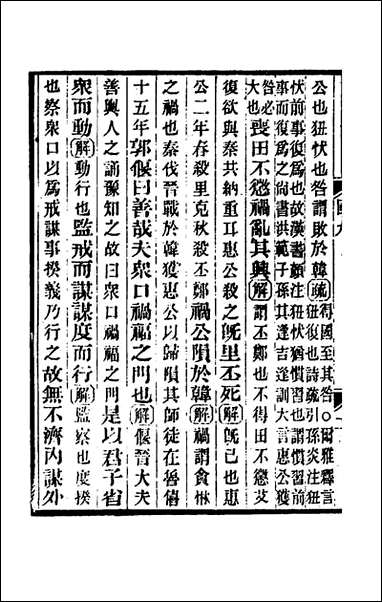 公也狃忕也咎謂敗於韓疏得國至其咎○爾雅釋言
狃復也詩疏引孫炎注狃
忕前事復爲也故漢書顏注狃忕慣習也謂慣習前
事而復爲之尚書洪範子孫其逢吉逢訓大言惠公獲
咎必
大也喪田不懲禍亂其興解謂丕鄭也不得田不懲艾
復欲與秦共納重耳惠公殺之既里丕死解既已也惠
公二年春殺里克秋殺丕鄭禍公隕於韓解禍謂貪惏
之禍也秦伐晉戰於韓獲惠公以歸隕其師徒在魯僖
十五年郭偃曰善哉夫衆口禍福之門也解偃晉大夫
善輿人之誦豫知之故曰衆口禍福之門是以君子省
衆而動解動行也監戒而謀謀度而行解監察也度揆
也察衆口以爲戒謀事揆義乃行之故無不濟內謀外
國九